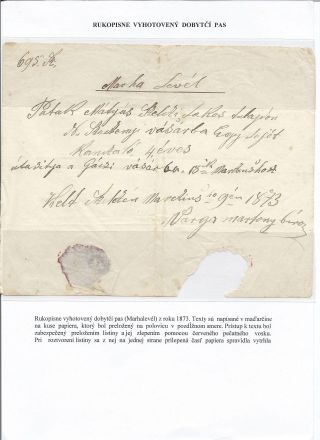 RUKOPISNE VYHOTOVENÝ DOBYTČÍ PAS
695. 
Marha Levél
Patak Mátyás lakos
vásárba Egy
4 éves
utasitja a vásárba
Kelt Martius 10 1873
Varga Martony biro
Rukopisne vyhotovený dobytčí pas (Marhalevél) z roku 1873. Texty sú napísané v maďarčine
na kuse papiera, ktorý bol preložený na polovicu v pozdĺžnom smere. Prístup k textu bol
zabezpečený preložením listiny a jej zlepením pomocou červeného pečatného vosku.
Pri roztvorení listiny sa z nej na jednej strane prilepená časť papiera spravidla vytrhla